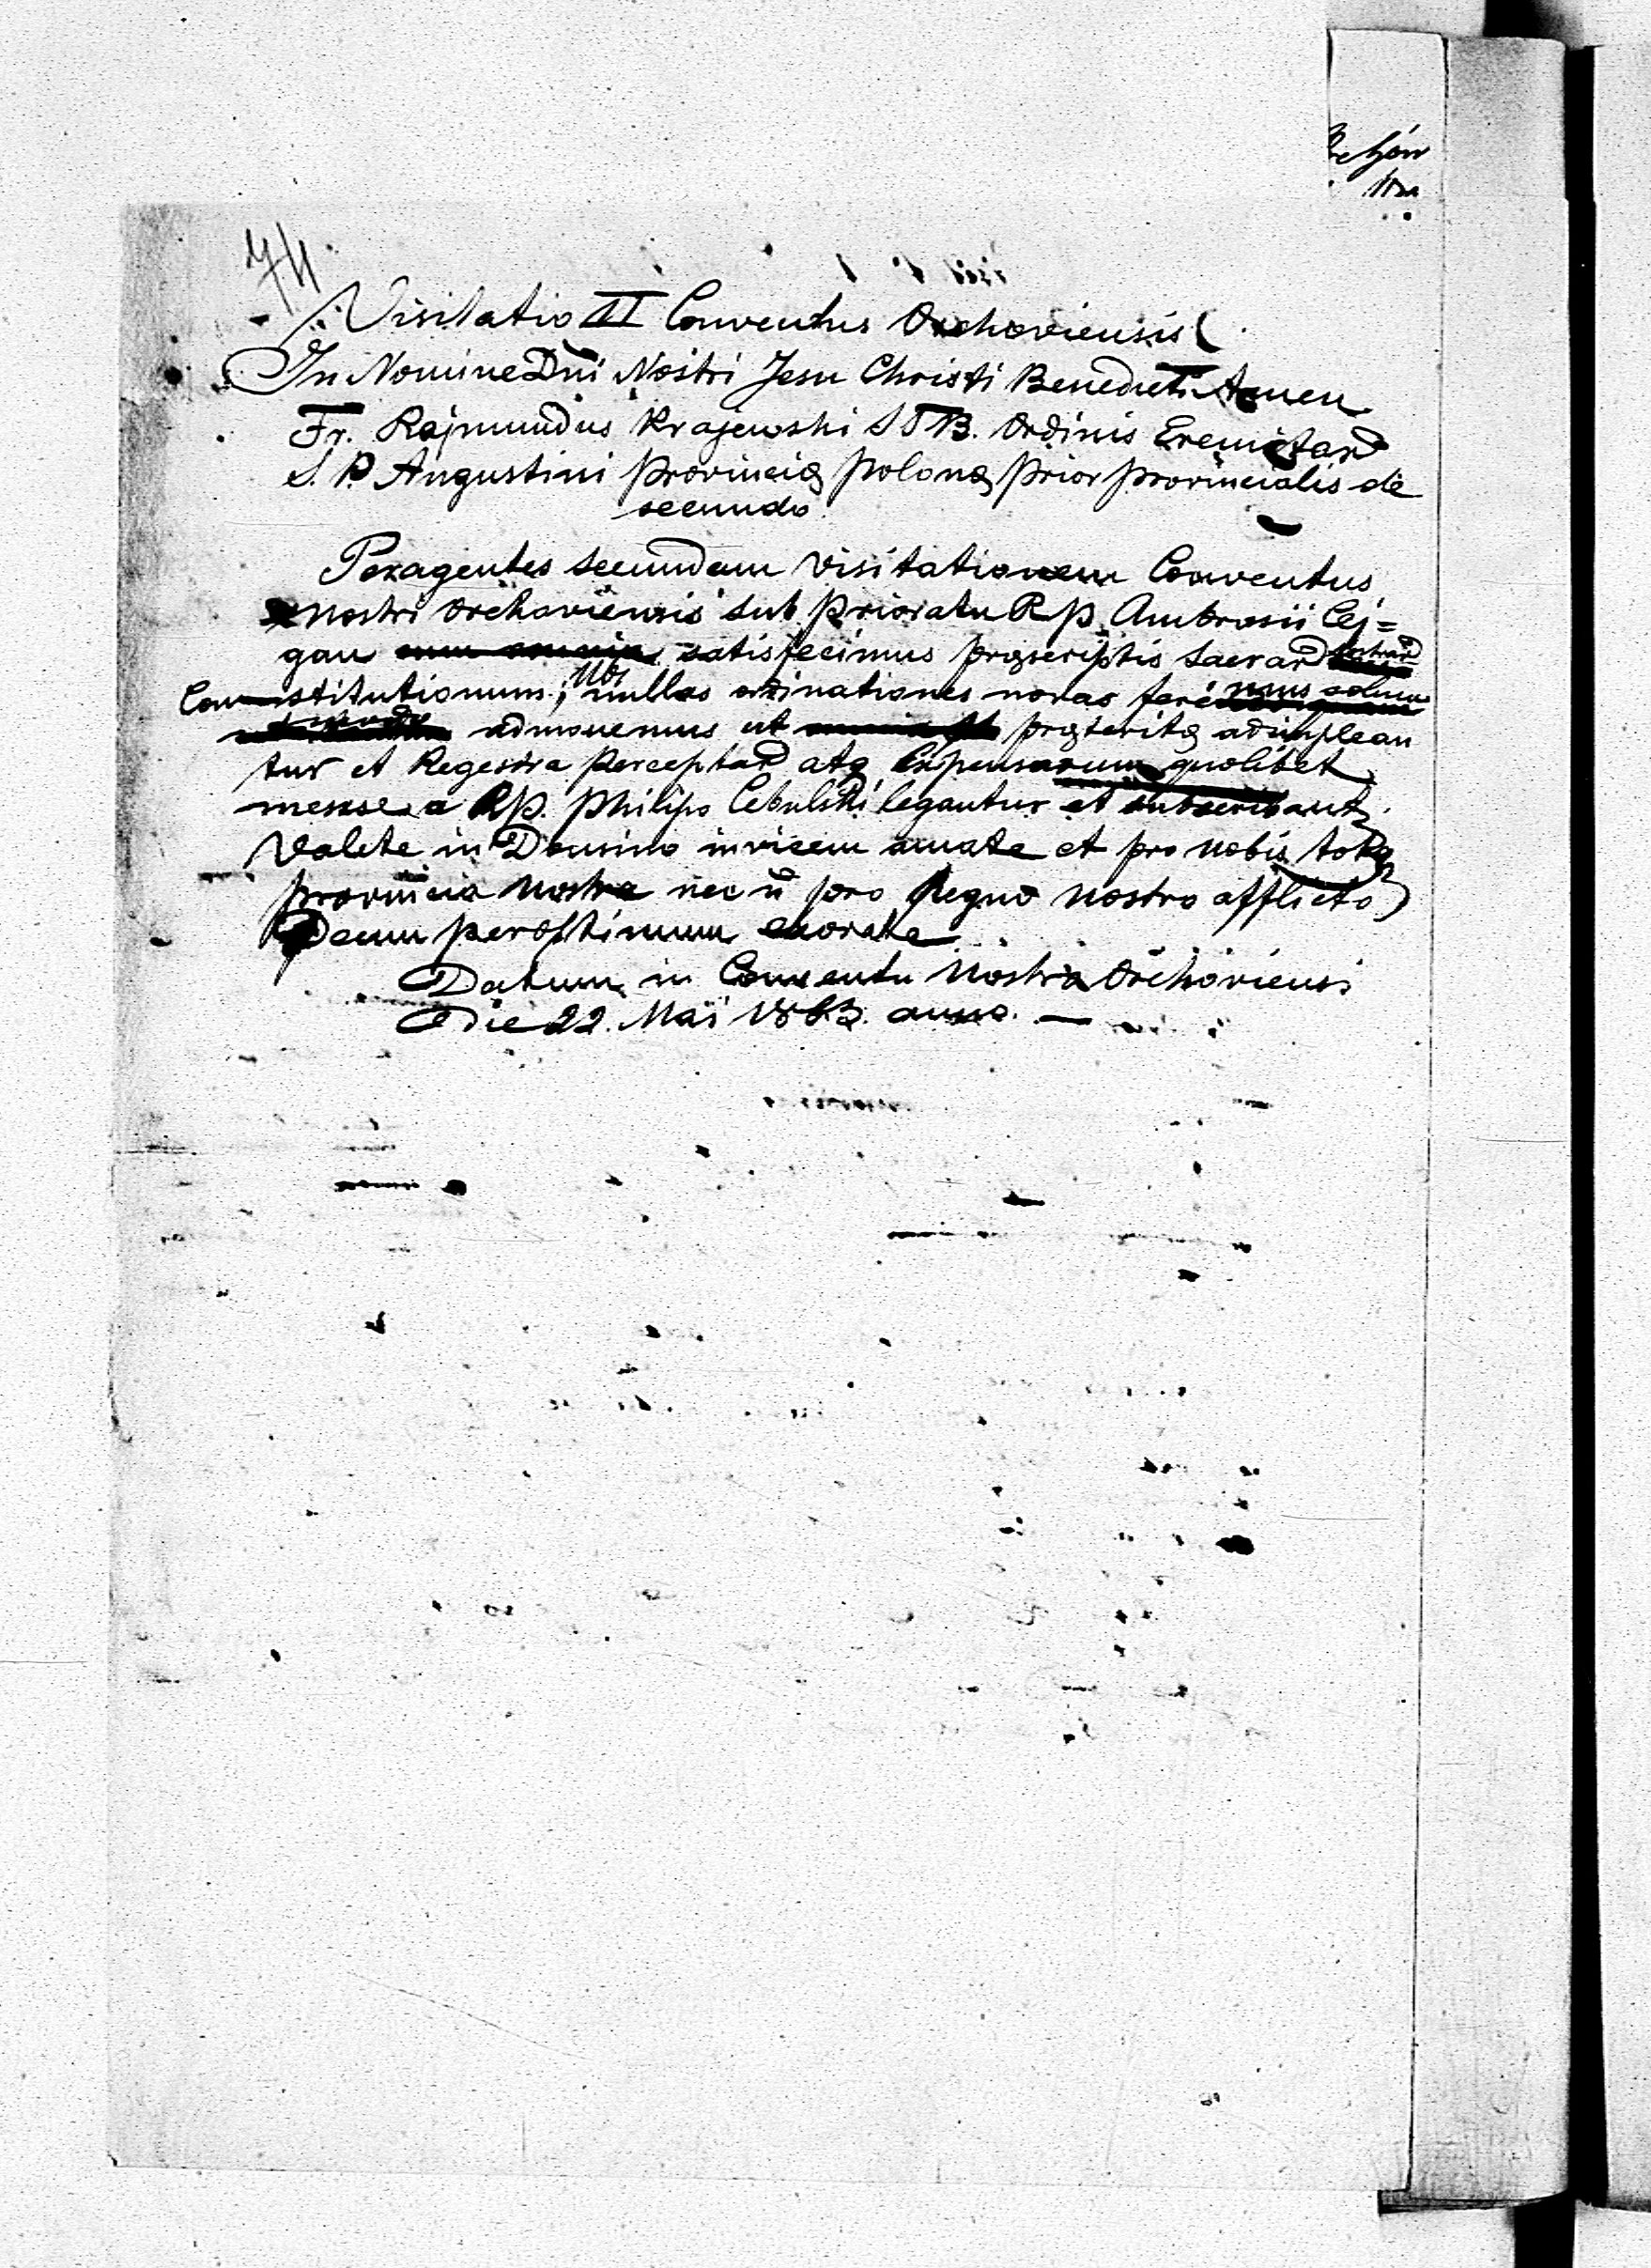 74
Visitatio II Conventus Orchoviensis
In Nomine Dni Nostri Jesu Christi Benedicti Amen
Fr. Rajmundus Krajewski STB. Ordinis Eremitar
S. P. Augustini provinciæ polonæ prior provincialis de
secundo.
Peragentes secundam visitationem Conventus
nostri Orchoviensis sub prioratu R p. Ambrosii Cej=
gau satisfecimus præscriptis sacrar nostrar
Constitutionum; Ubi nullas ordinationes novas feri mus solum
modo admonemus ut præterita adimplean
tur et Regestra perceptar atq expensarum quolibet
mense a Rp. Philipo Cebulski legantur et subscribant
Valete in Domino invicem amate et pro nobis tota
provincia nostra nec n pro Regno nostro afflicto
Deum per optimum exorate
Datum in Conventu Nostro Orchoviensi
die 22. Maii 1863. anno. —